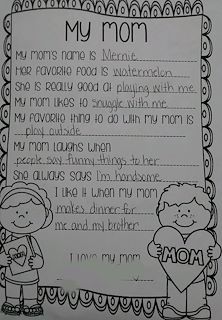 MY MOM
MY MOM'S NAME IS Mernie
HER FAVORITE FOOD IS watermelon
SHE IS REALLY GOOD AT playing with me
MY MOM LIKES TO snuggle with me
MY FAVORITE THING TO DO WITH MY MOM IS
play outside
MY MOM LAUGHS WHEN
people say funny things to her
SHE ALWAYS SAYS I'm handsome
I LIKE IT WHEN MY MOM
makes dinner for
me and my brother
I LOVE MY MOM
MOM